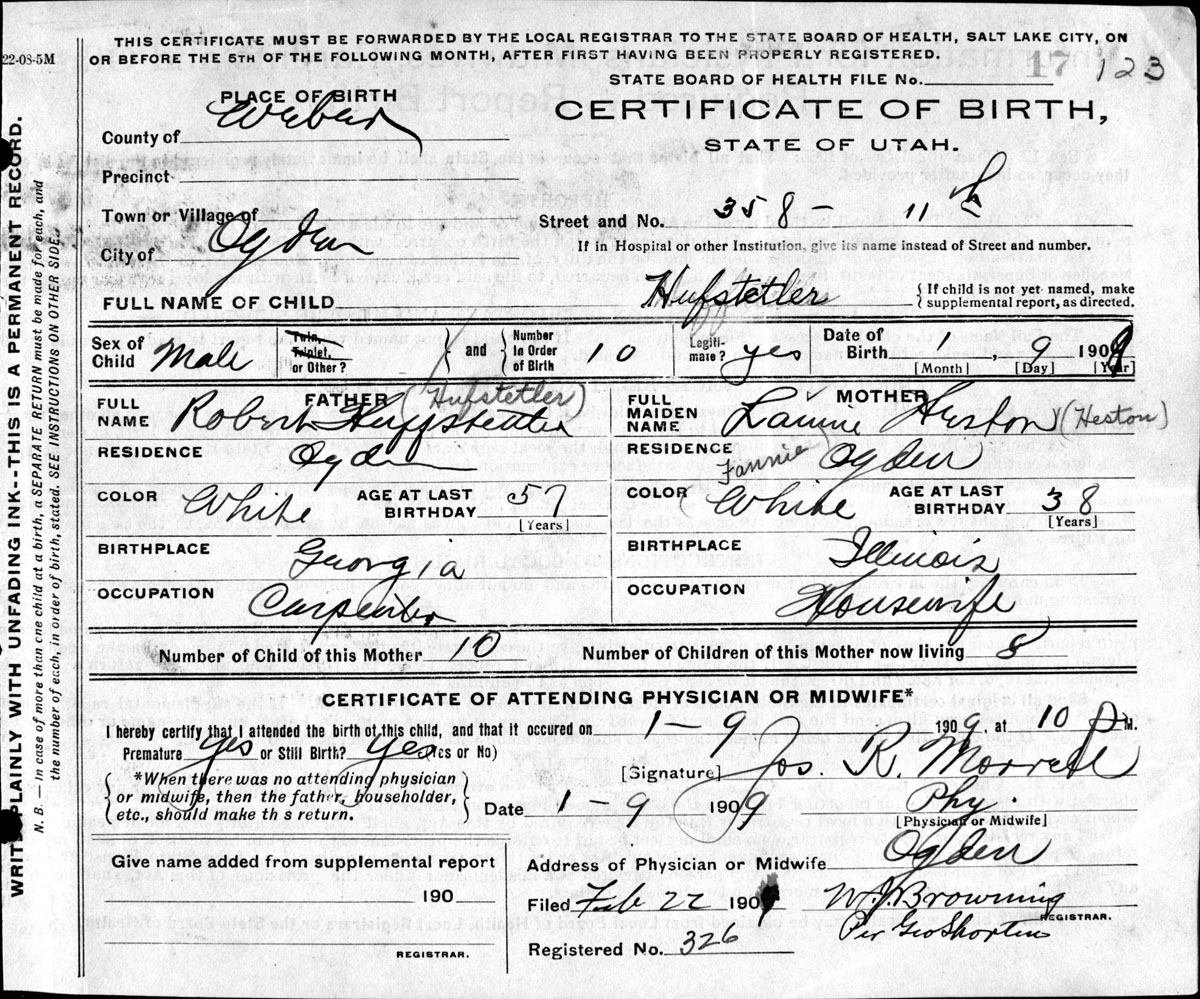 THIS CERTIFICATE MUST BE FORWARDED BY THE LOCAL REGISTRAR TO THE STATE BOARD OF HEALTH, SALT LAKE CITY, ON
OR BEFORE THE 5TH OF THE FOLLOWING MONTH, AFTER FIRST HAVING BEEN PROPERLY REGISTERED.
22-08-5M
STATE BOARD OF HEALTH FILE No. 17 123
PLACE OF BIRTH
CERTIFICATE OF BIRTH,
STATE OF UTAH.
County of Weber
Precinct
Town or Village of
Street and No. 358 - 11th
City of Ogden
If in Hospital or other Institution, give its name instead of Street and number.
FULL NAME OF CHILD Hufstetler { If child is not yet named, make supplemental report, as directed.
Sex of Child Male Twin, Triplet, or Other? } and { Number In Order of Birth 10 Legiti-mate? yes Date of Birth 1 9 1909
[Month] [Day] [Year]
FATHER
FULL NAME Robert Huffstetler (Hufstetler)
RESIDENCE Ogd
COLOR White AGE AT LAST BIRTHDAY 57 [Years]
BIRTHPLACE Georgia
OCCUPATION Carpenter
MOTHER
FULL MAIDEN NAME Lannie Huston (Heston)
(Fannie)
RESIDENCE Ogden
COLOR White AGE AT LAST BIRTHDAY 38 [Years]
BIRTHPLACE Illinois
OCCUPATION Housewife
Number of Child of this Mother 10 Number of Children of this Mother now living 8
CERTIFICATE OF ATTENDING PHYSICIAN OR MIDWIFE*
I hereby certify that I attended the birth of this child, and that it occured on 1 9 1909 at 10 P M.
Premature yes or Still Birth? yes (Yes or No)
*When there was no attending physician
or midwife, then the father, householder,
etc., should make th s return.
[Signature] Jos. R. Morrell
Date 1 9 1909 Phy.
[Physician or Midwife]
Give name added from supplemental report
190
REGISTRAR.
Address of Physician or Midwife Ogden
Filed Feb 22 190 W. J. Browning
REGISTRAR.
Registered No. 326 Per Geo Shorten
WRITE PLAINLY WITH UNFADING INK--THIS IS A PERMANENT RECORD.
N. B.—In case of more than one child at a birth, a SEPARATE RETURN must be made for each, and
the number of each in order of birth, stated. SEE INSTRUCTIONS ON OTHER SIDE.